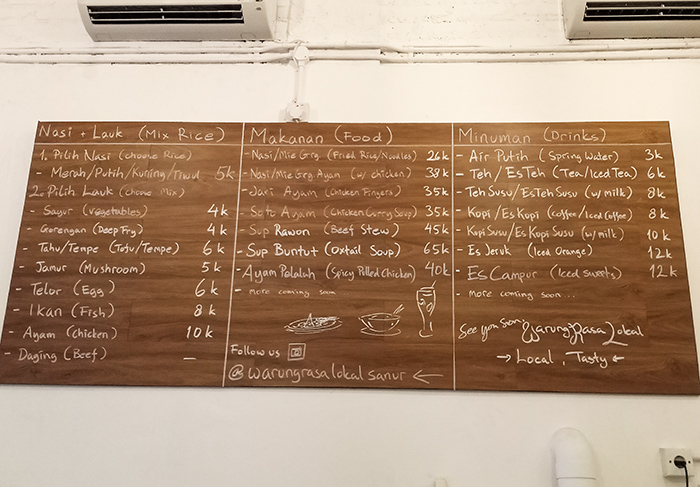 Nasi + Lauk (Mix Rice)
1. Pilih Nasi (choose Rice)
- Merah/Putih/Kuning/Tiwul 5k
2. Pilih Lauk (choose Mix)
- Sayur (vegetables) 4k
- Gorengan (Deep Fry) 4k
- Tahu/Tempe (Tofu/Tempe) 6k
- Jamur (Mushroom) 5k
- Telor (Egg) 6k
- Ikan (Fish) 8k
- Ayam (chicken) 10k
- Daging (Beef) -
Makanan (Food)
- Nasi/Mie Grg (Fried Rice/Noodles) 26k
- Nasi/Mie Grg Ayam (w/ chicken) 38k
- Jari Ayam (Chicken Fingers) 35k
- Soto Ayam (Chicken Curry Soup) 35k
- Sup Rawon (Beef Stew) 45k
- Sup Buntut (Oxtail Soup) 65k
- Ayam Pelalah (Spicy Pulled Chicken) 40k
- more coming soon
Follow us
@warungrasalokalsanur ←
Minuman (Drinks)
- Air Putih (Spring Water) 3k
- Teh/Es Teh (Tea/Iced Tea) 6k
- Teh Susu/Es Teh Susu (w/ milk) 8k
- Kopi/Es Kopi (coffee/Iced Coffee) 8k
- Kopi Susu/Es Kopi Susu (w/ milk) 10k
- Es Jeruk (Iced Orange) 12k
- Es Campur (Iced sweets) 12k
- more coming soon...
See you soon, Warung Rasa Lokal
→ Local, Tasty ←